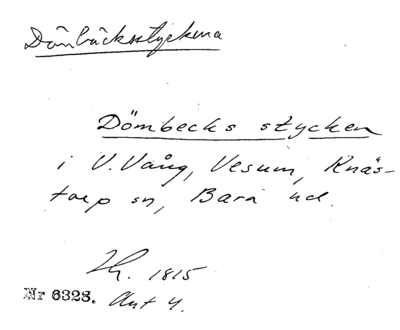 Dönbäcksstyckena
Dömbecks stycken
i V. Vång, Vesum, Knäs-
torp sn, Bara hd.
Lh. 1815
Nr 6328. Akt 4.